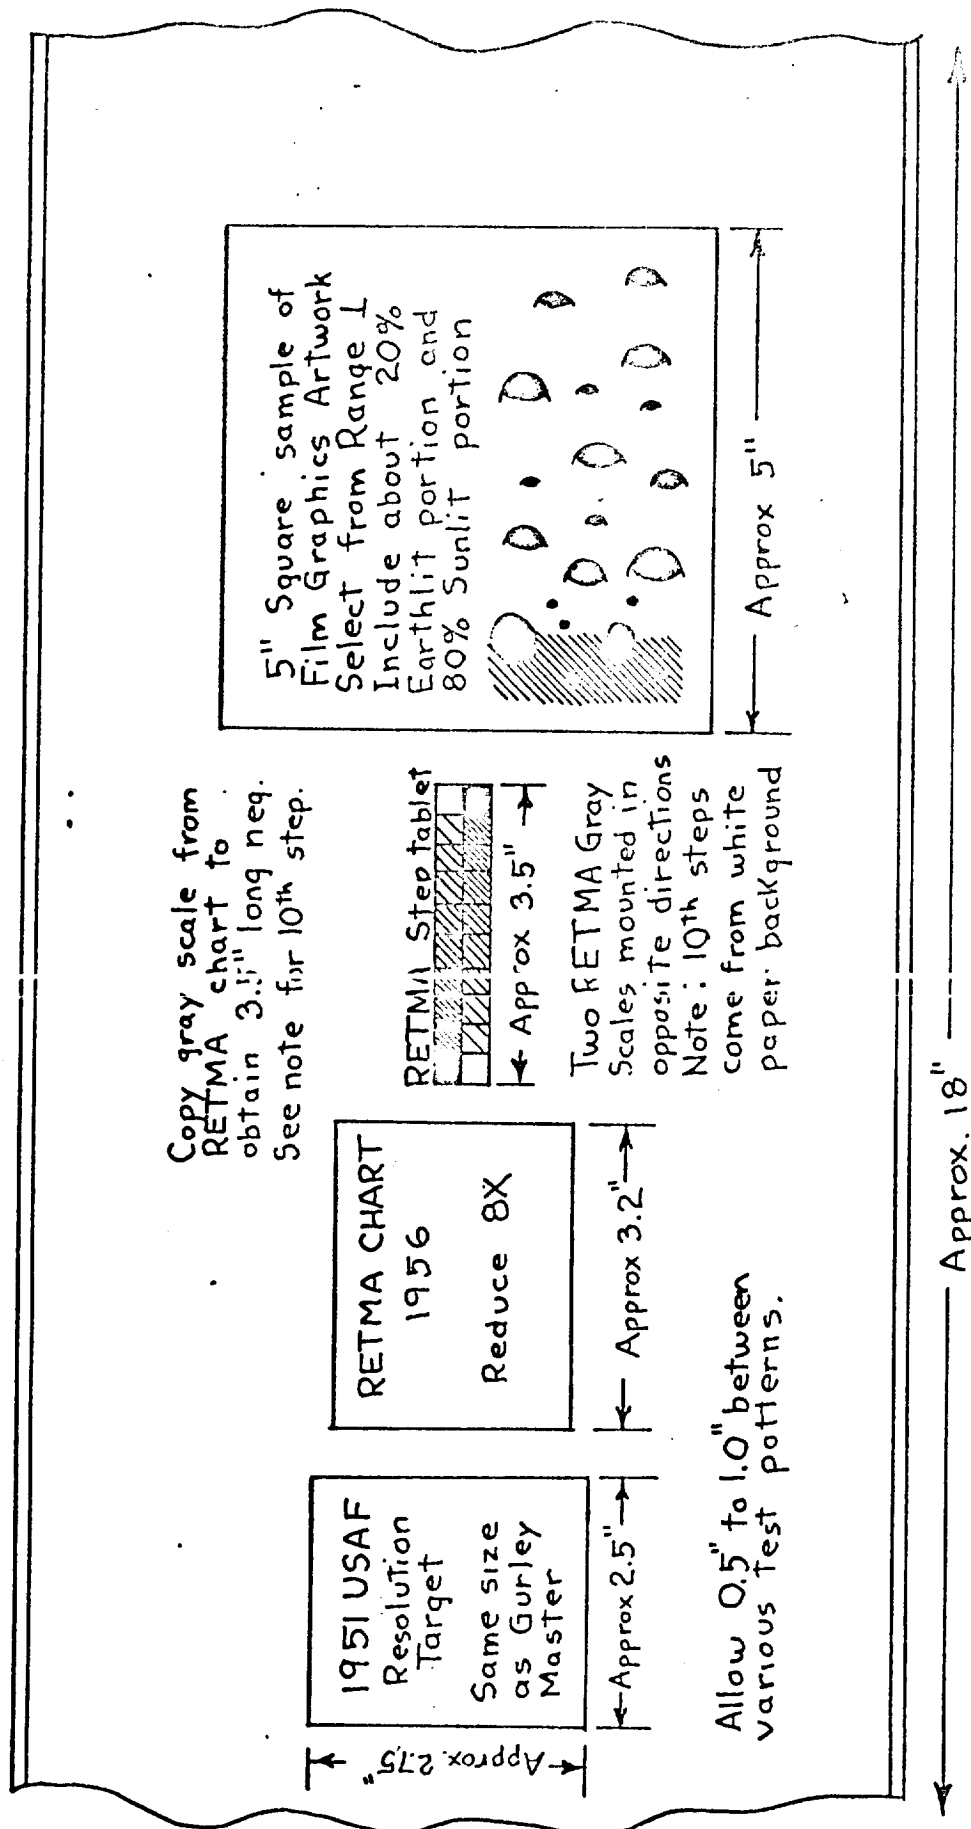 1951 USAF
Resolution
Target
Same size
as Gurley
Master
Approx 2.75"
Approx 2.5"
RETMA CHART
1956
Reduce 8X
Approx 3.2"
Allow 0.5" to 1.0" between
various test patterns.
Copy gray scale from
RETMA chart to
obtain 3.5" long neg.
See note for 10th step.
RETMA Step tablet
Approx 3.5"
Two RETMA Gray
Scales mounted in
opposite directions
Note: 10th steps
come from white
paper background
5" Square sample of
Film Graphics Artwork
Select from Range 1
Include about 20%
Earthlit portion and
80% Sunlit portion
Approx 5"
Approx. 18"